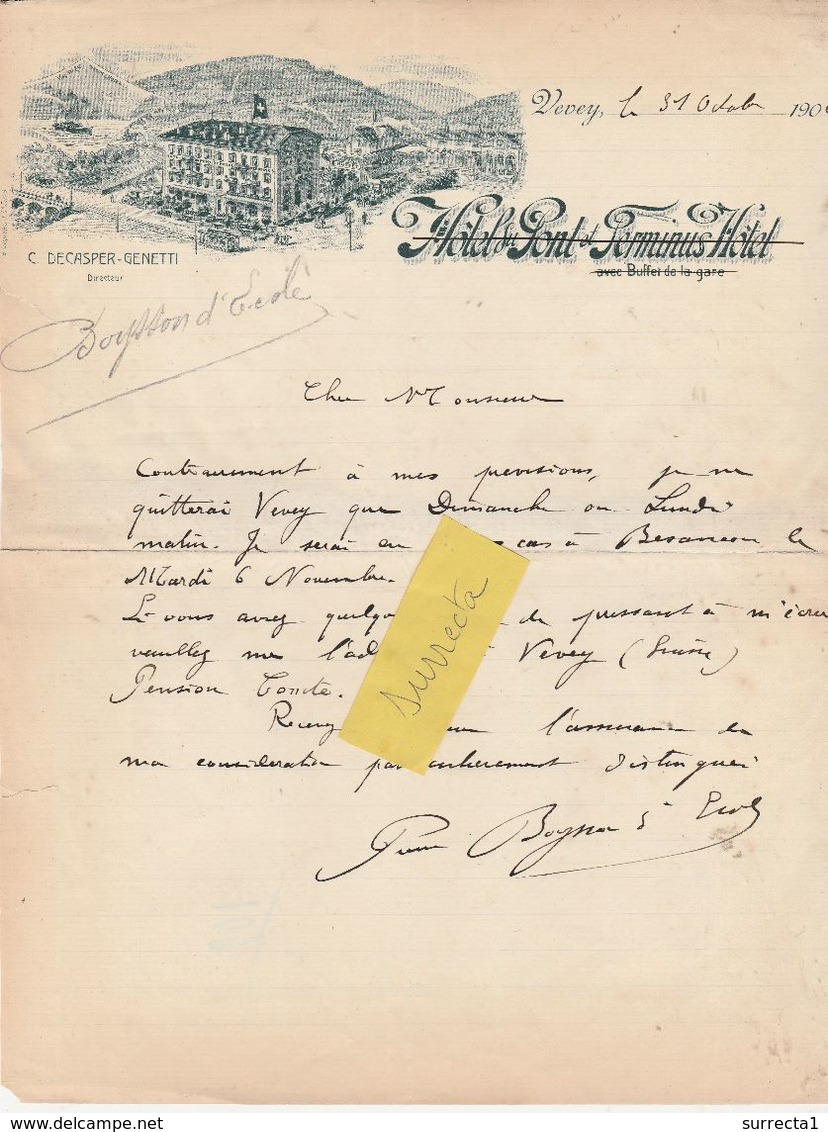 Vevey, le 31 Octobre 190
Hôtel du Pont et Terminus Hôtel
avec Buffet de la gare
C. DECASPER-GENETTI
Directeur
Boysson d'Ecole
Cher Monsieur
Contrairement à mes previsions, je ne
quitterai Vevey que Dimanche ou Lundi
matin. Je serai en cas à Besancon le
Mardi 6 Novembre.
Si vous avez quelque de pressant à m'écrire
veuillez me l'ad Vevey (Suisse)
Pension Comte.
Recevez l'assurance de
ma consideration particulierement distinguée
Pierre Boysson d'Ecole
surrecta
delcampe.net
surrecta1